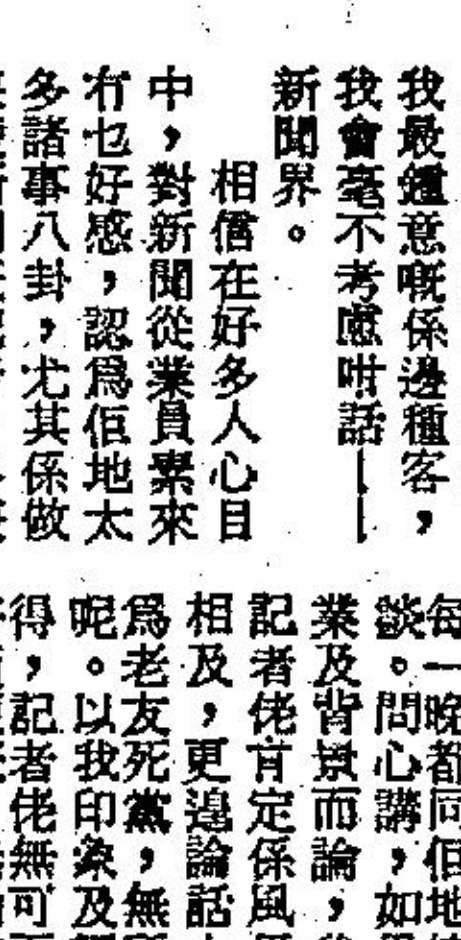 我最鍾意嘅係邊種客，
我會毫不考慮咁話——
新聞界。
相信在好多人心目
中，對新聞從業員素來
冇乜好感，認爲佢地太
多諸事八卦，尤其係做
每一晚都同佢地
談。問心講，如
業及背景而論，
記者佬肯定係風
相及，更遑論話
爲老友死黨，無
呢。以我印象及
得，記者佬無可